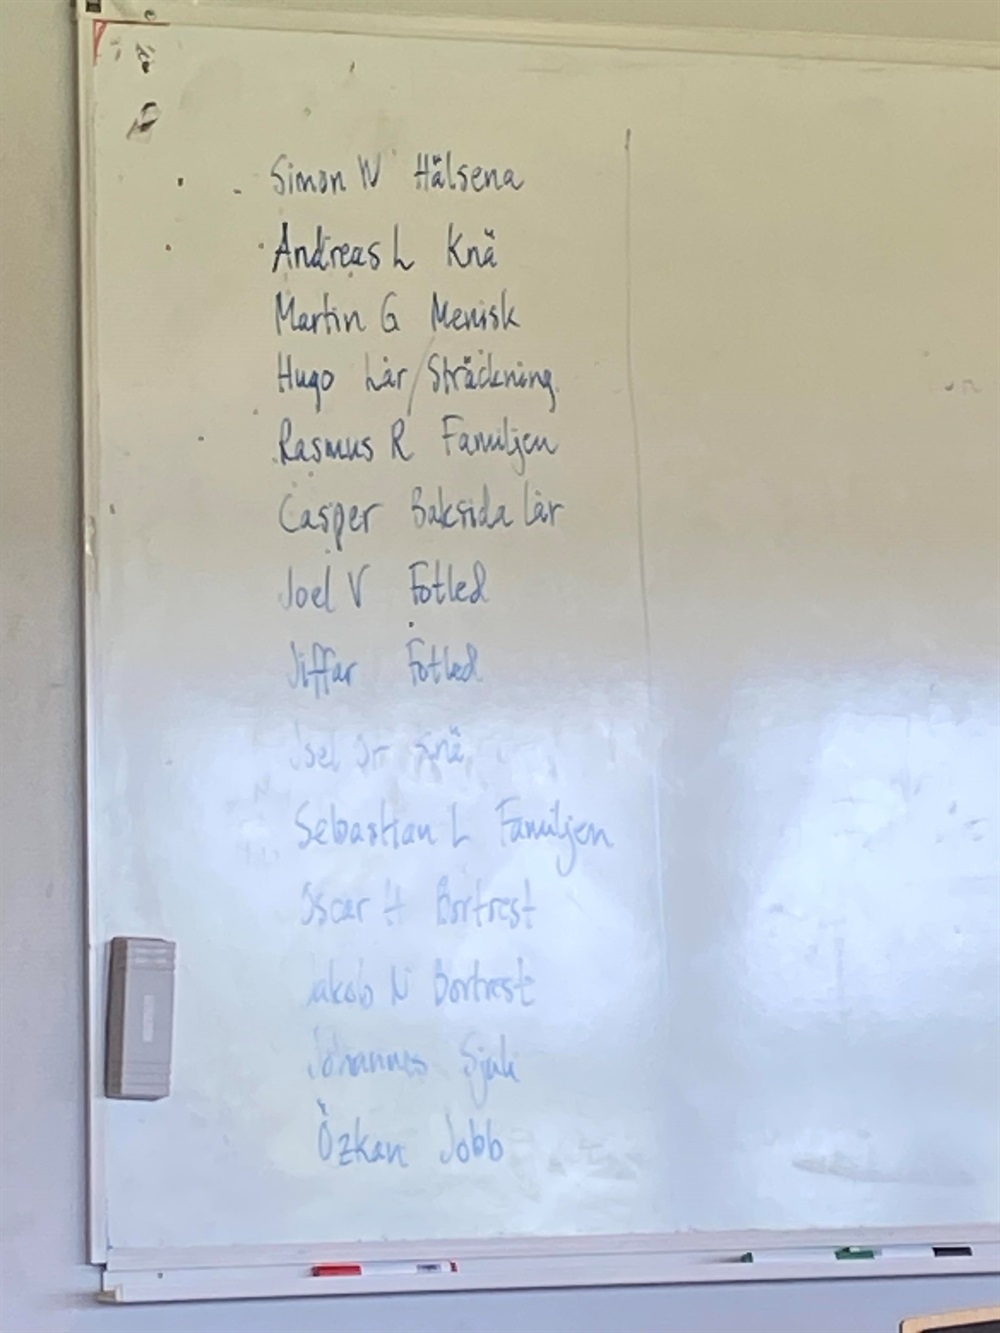 Simon W Hälsena
Andreas L Knä
Martin G Menisk
Hugo Lår/Sträckning
Rasmus R Familjen
Casper Baksida lår
Joel V Fotled
Jiffar Fotled
Joel Knä
Sebastian L Familjen
Oscar H Bortrest
Jakob N Bortrest
Johannes Sjuk
Özkan Jobb